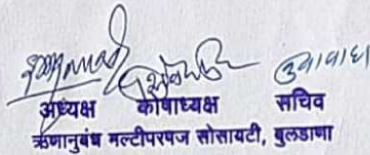 अध्यक्ष कोषाध्यक्ष सचिव
ऋणानुबंध मल्टीपरपज सोसायटी, बुलडाणा